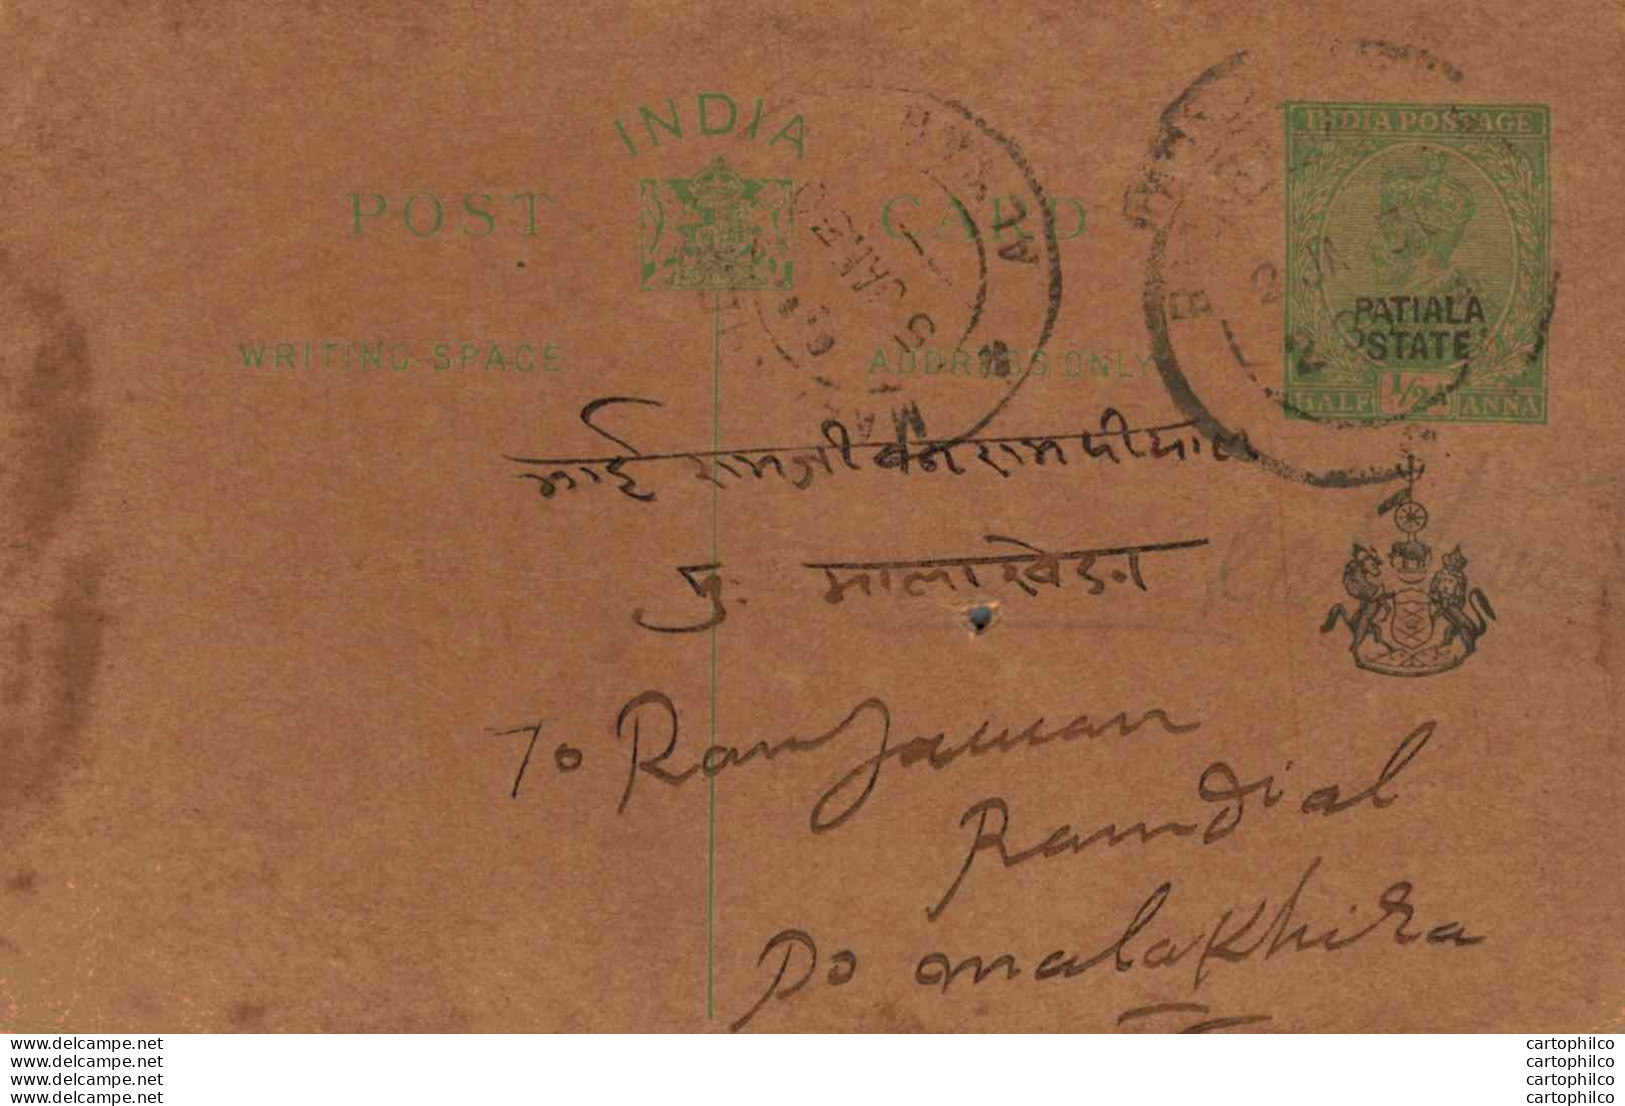 INDIA
POST CARD
INDIA POSTAGE
PATIALA
STATE
HALF 1/2 A ANNA
WRITING SPACE
ADDRESS ONLY
भाई रामजीवन राम
पु. मालाखेडा
To Ramjawan
Ramdial
Po malakhira
www.delcampe.net cartophilco
www.delcampe.net cartophilco
www.delcampe.net cartophilco
www.delcampe.net cartophilco